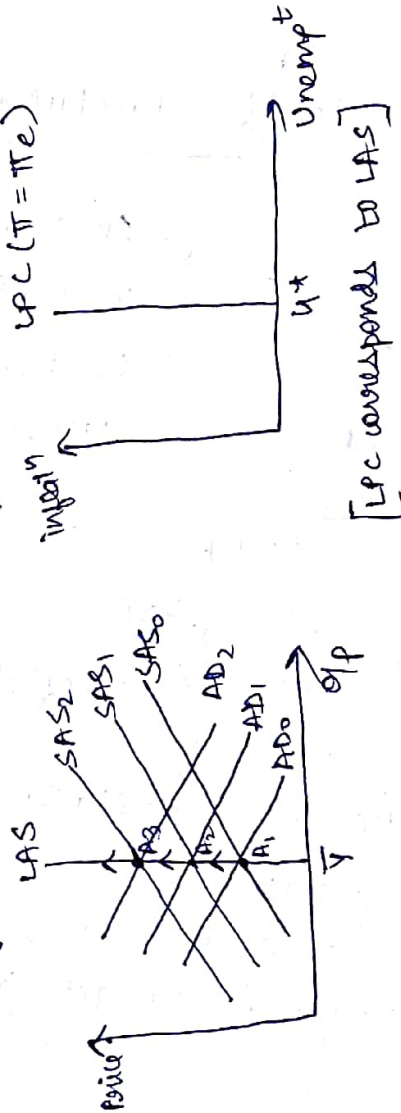 Price
LAS
SAS2
SAS1
SAS0
A3
A2
A1
AD2
AD1
AD0
Y̅
O/P
inflatⁿ
LPC (π = πe)
u*
Unempᵗ
[LPC corresponds to LAS]